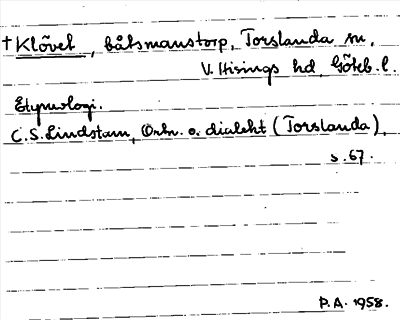 † Klövet, båtsmanstorp, Torslanda sn,
V. Hisings hd, Göteb. l.
Etymologi.
C. S. Lindstam, Ortn. o. dialekt (Torslanda),
s. 67.
P.A. 1958.